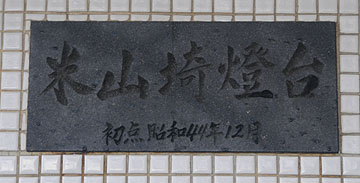 米山埼燈台
初点昭和44年12月